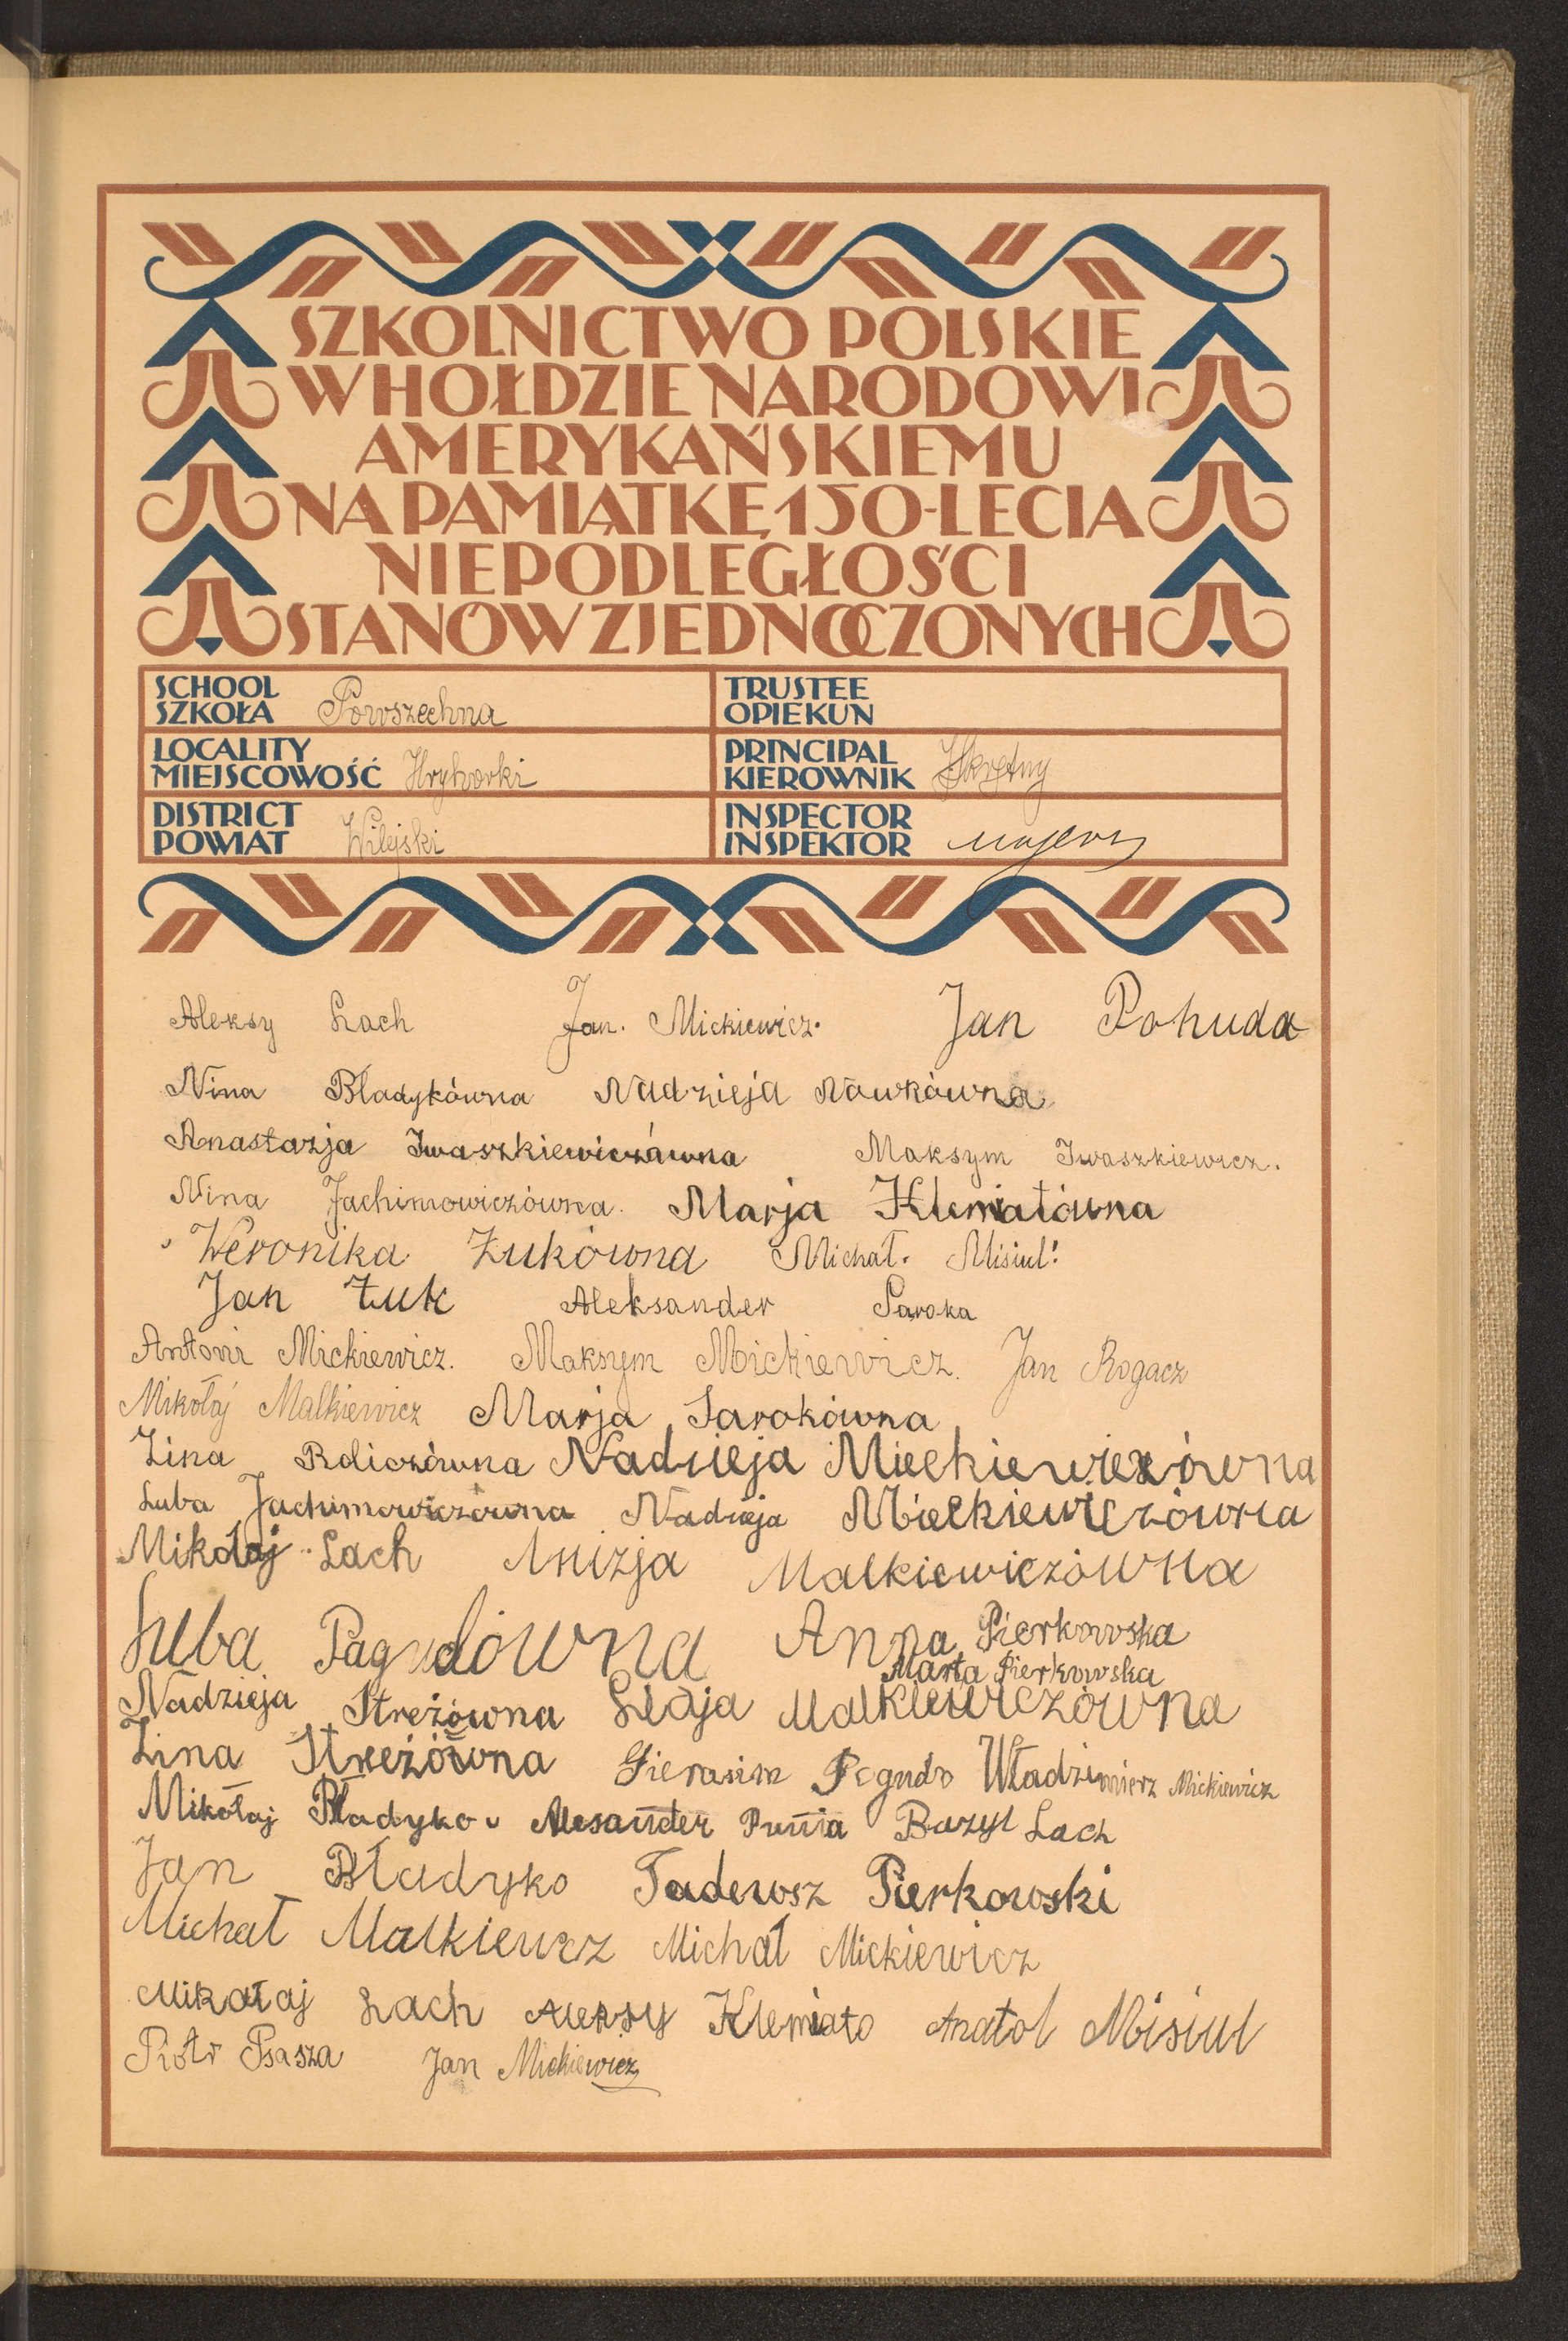 SZKOLNICTWO POLSKIE
W HOŁDZIE NARODOWI
AMERYKAŃSKIEMU
NA PAMIĄTKĘ 150-LECIA
NIEPODLEGŁOŚCI
STANÓW ZJEDNOCZONYCH
SCHOOL
SZKOŁA Powszechna
TRUSTEE
OPIEKUN
LOCALITY
MIEJSCOWOŚĆ Hryhorki
PRINCIPAL
KIEROWNIK
DISTRICT
POWIAT Wilejski
INSPECTOR
INSPEKTOR
Aleksy Lach Jan. Mickiewicz. Jan Pohuda
Nina Bladykówna Nadzieja Nowkówna
Anastazja Iwaszkiewiczówna Maksym Iwaszkiewicz.
Nina Jachimowiczówna. Marja Klemiatówna
Weronika Żukówna Michał. Misiul.
Jan Żuk Aleksander Saroka
Antoni Mickiewicz. Maksym Mickiewicz. Jan Rogacz
Mikołaj Malkiewicz Marja Sarokówna
Zina Roliczówna Nadzieja Mickiewiczówna
Luba Jachimowiczówna Nadzieja Mickiewiczówna
Mikołaj Lach Anizja Malkiewiczówna
Luba Pagudówna Anna Pierkowska
Marta Pierkowska
Nadzieja Streżówna Malkiewiczówna
Zina Streżówna Gierasim Pogudo Władzimierz Mickiewicz
Mikołaj Bładyko Alesander Punia Bazyl Lach
Jan Bładyko Tadeusz Pierkowski
Michał Malkiewicz Michał Mickiewicz
Mikałaj Lach Aleksy Klemiato Anatol Misiul
Piotr Psasza Jan Mickiewicz